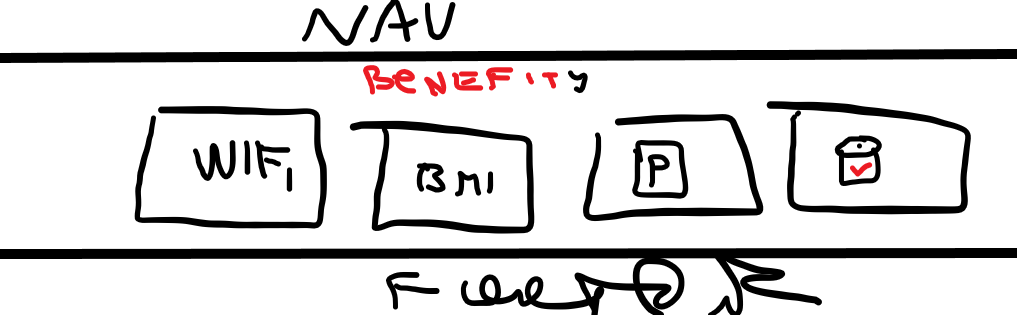 NAV
BENEFITY
WIFI
BMI
P